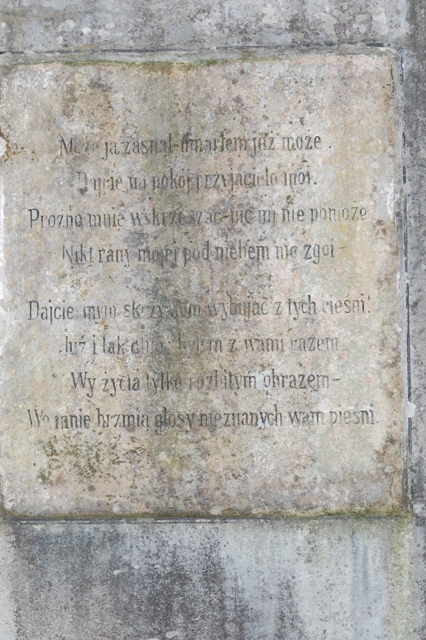 Może ja zasnął-umarłem już może.
Dajcie mi pokój przyjaciele moi.
Prozno mnie wskrzeszać-nic mi nie pomoże
Nikt rany mojej pod niebem nie zgoi –
Dajcie mym skrzydłom wybujać z tych cieśni!
Już i tak długo byłem z wami razem
Wy życia tylko rozbitym obrazem –
We mnie brzmią głosy nieznanych wam pieśni.